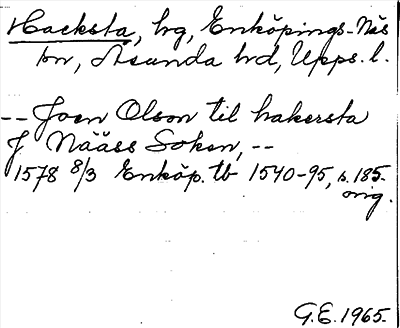 Hacksta, hg, Enköpings-Näs
sn, Åsunda hd, Upps. l.
-- Joen Olson til hakersta
J Nääss Soken, --
1578 8/3 Enköp. tb 1540-95, s. 185.
orig.
G.E. 1965.